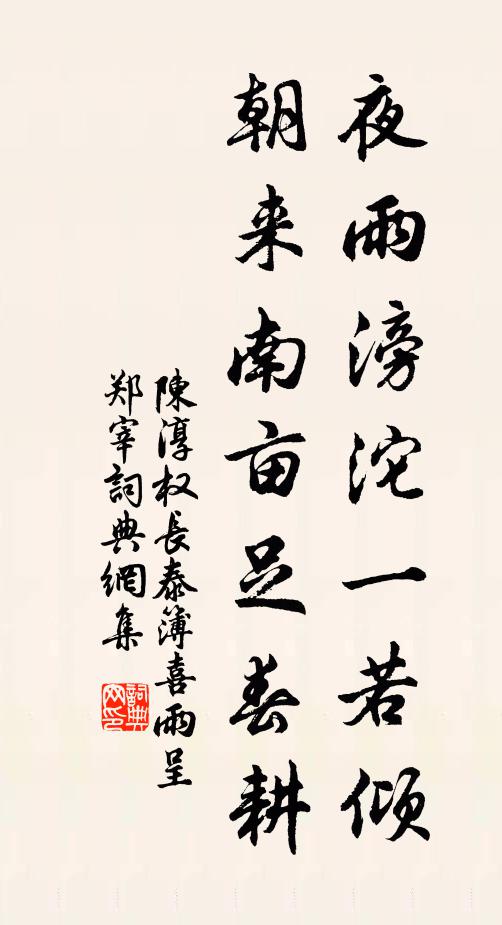 夜雨滂沱一若傾
朝来南亩足春耕
陳淳权長泰簿喜雨呈
郑宰詞典網集
詞典网印